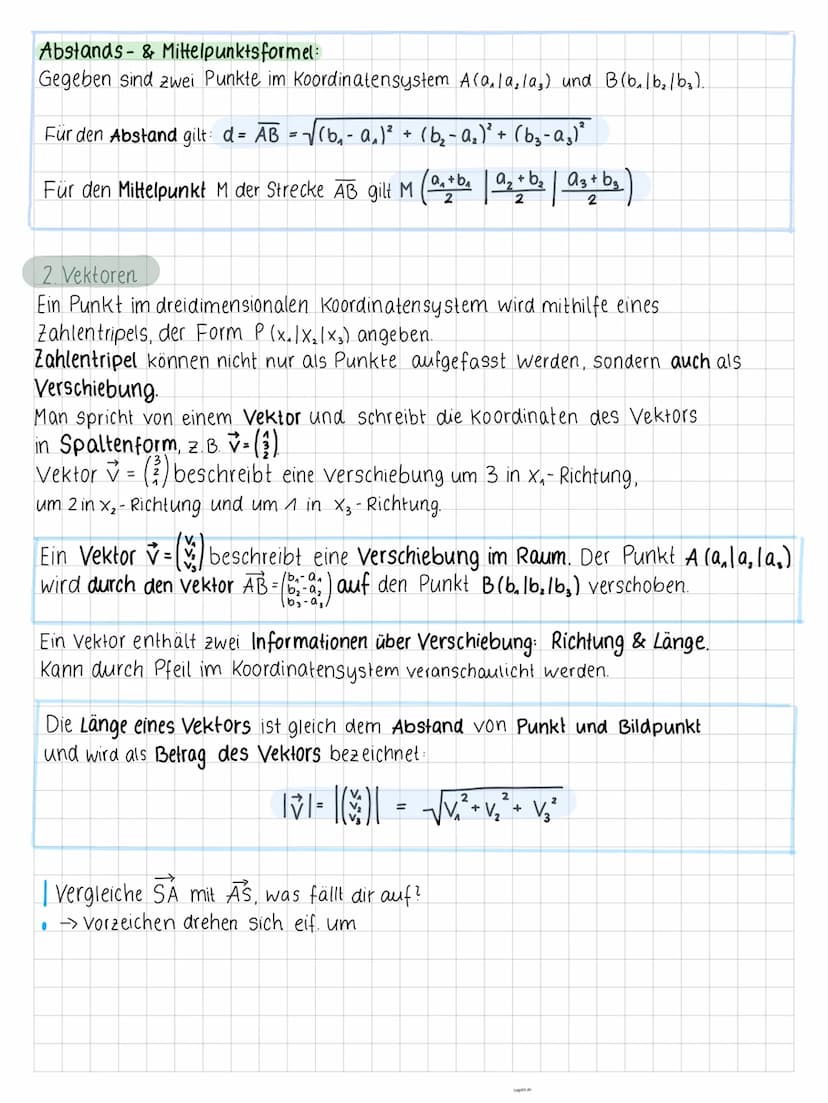 Abstands- & Mittelpunktsformel:
Gegeben sind zwei Punkte im Koordinatensystem A(a₁|a₂|a₃) und B(b₁|b₂|b₃).
Für den Abstand gilt: d = A̅B̅ = √((b₁ - a₁)² + (b₂ - a₂)² + (b₃ - a₃)²)
Für den Mittelpunkt M der Strecke A̅B̅ gilt M ((a₁+b₁)/2 | (a₂+b₂)/2 | (a₃+b₃)/2)
2. Vektoren
Ein Punkt im dreidimensionalen Koordinatensystem wird mithilfe eines
Zahlentripels, der Form P (x₁|x₂|x₃) angeben.
Zahlentripel können nicht nur als Punkte aufgefasst werden, sondern auch als
Verschiebung.
Man spricht von einem Vektor und schreibt die Koordinaten des Vektors
in Spaltenform, z.B. v⃗ = (1 3 2)
Vektor v⃗ = (3 2 1) beschreibt eine Verschiebung um 3 in x₁- Richtung,
um 2 in x₂ - Richtung und um 1 in x₃ - Richtung.
Ein Vektor v⃗ = (v₁ v₂ v₃) beschreibt eine Verschiebung im Raum. Der Punkt A (a₁|a₂|a₃)
wird durch den Vektor AB⃗ = (b₁-a₁ b₂-a₂ b₃-a₃) auf den Punkt B(b₁|b₂|b₃) verschoben.
Ein Vektor enthält zwei Informationen über Verschiebung: Richtung & Länge.
Kann durch Pfeil im Koordinatensystem veranschaulicht werden.
Die Länge eines Vektors ist gleich dem Abstand von Punkt und Bildpunkt
und wird als Betrag des Vektors bezeichnet:
|v⃗| = |(v₁ v₂ v₃)| = √(v₁² + v₂² + v₃²)
Vergleiche SA⃗ mit AS⃗, was fällt dir auf?
→ Vorzeichen drehen sich eif. um